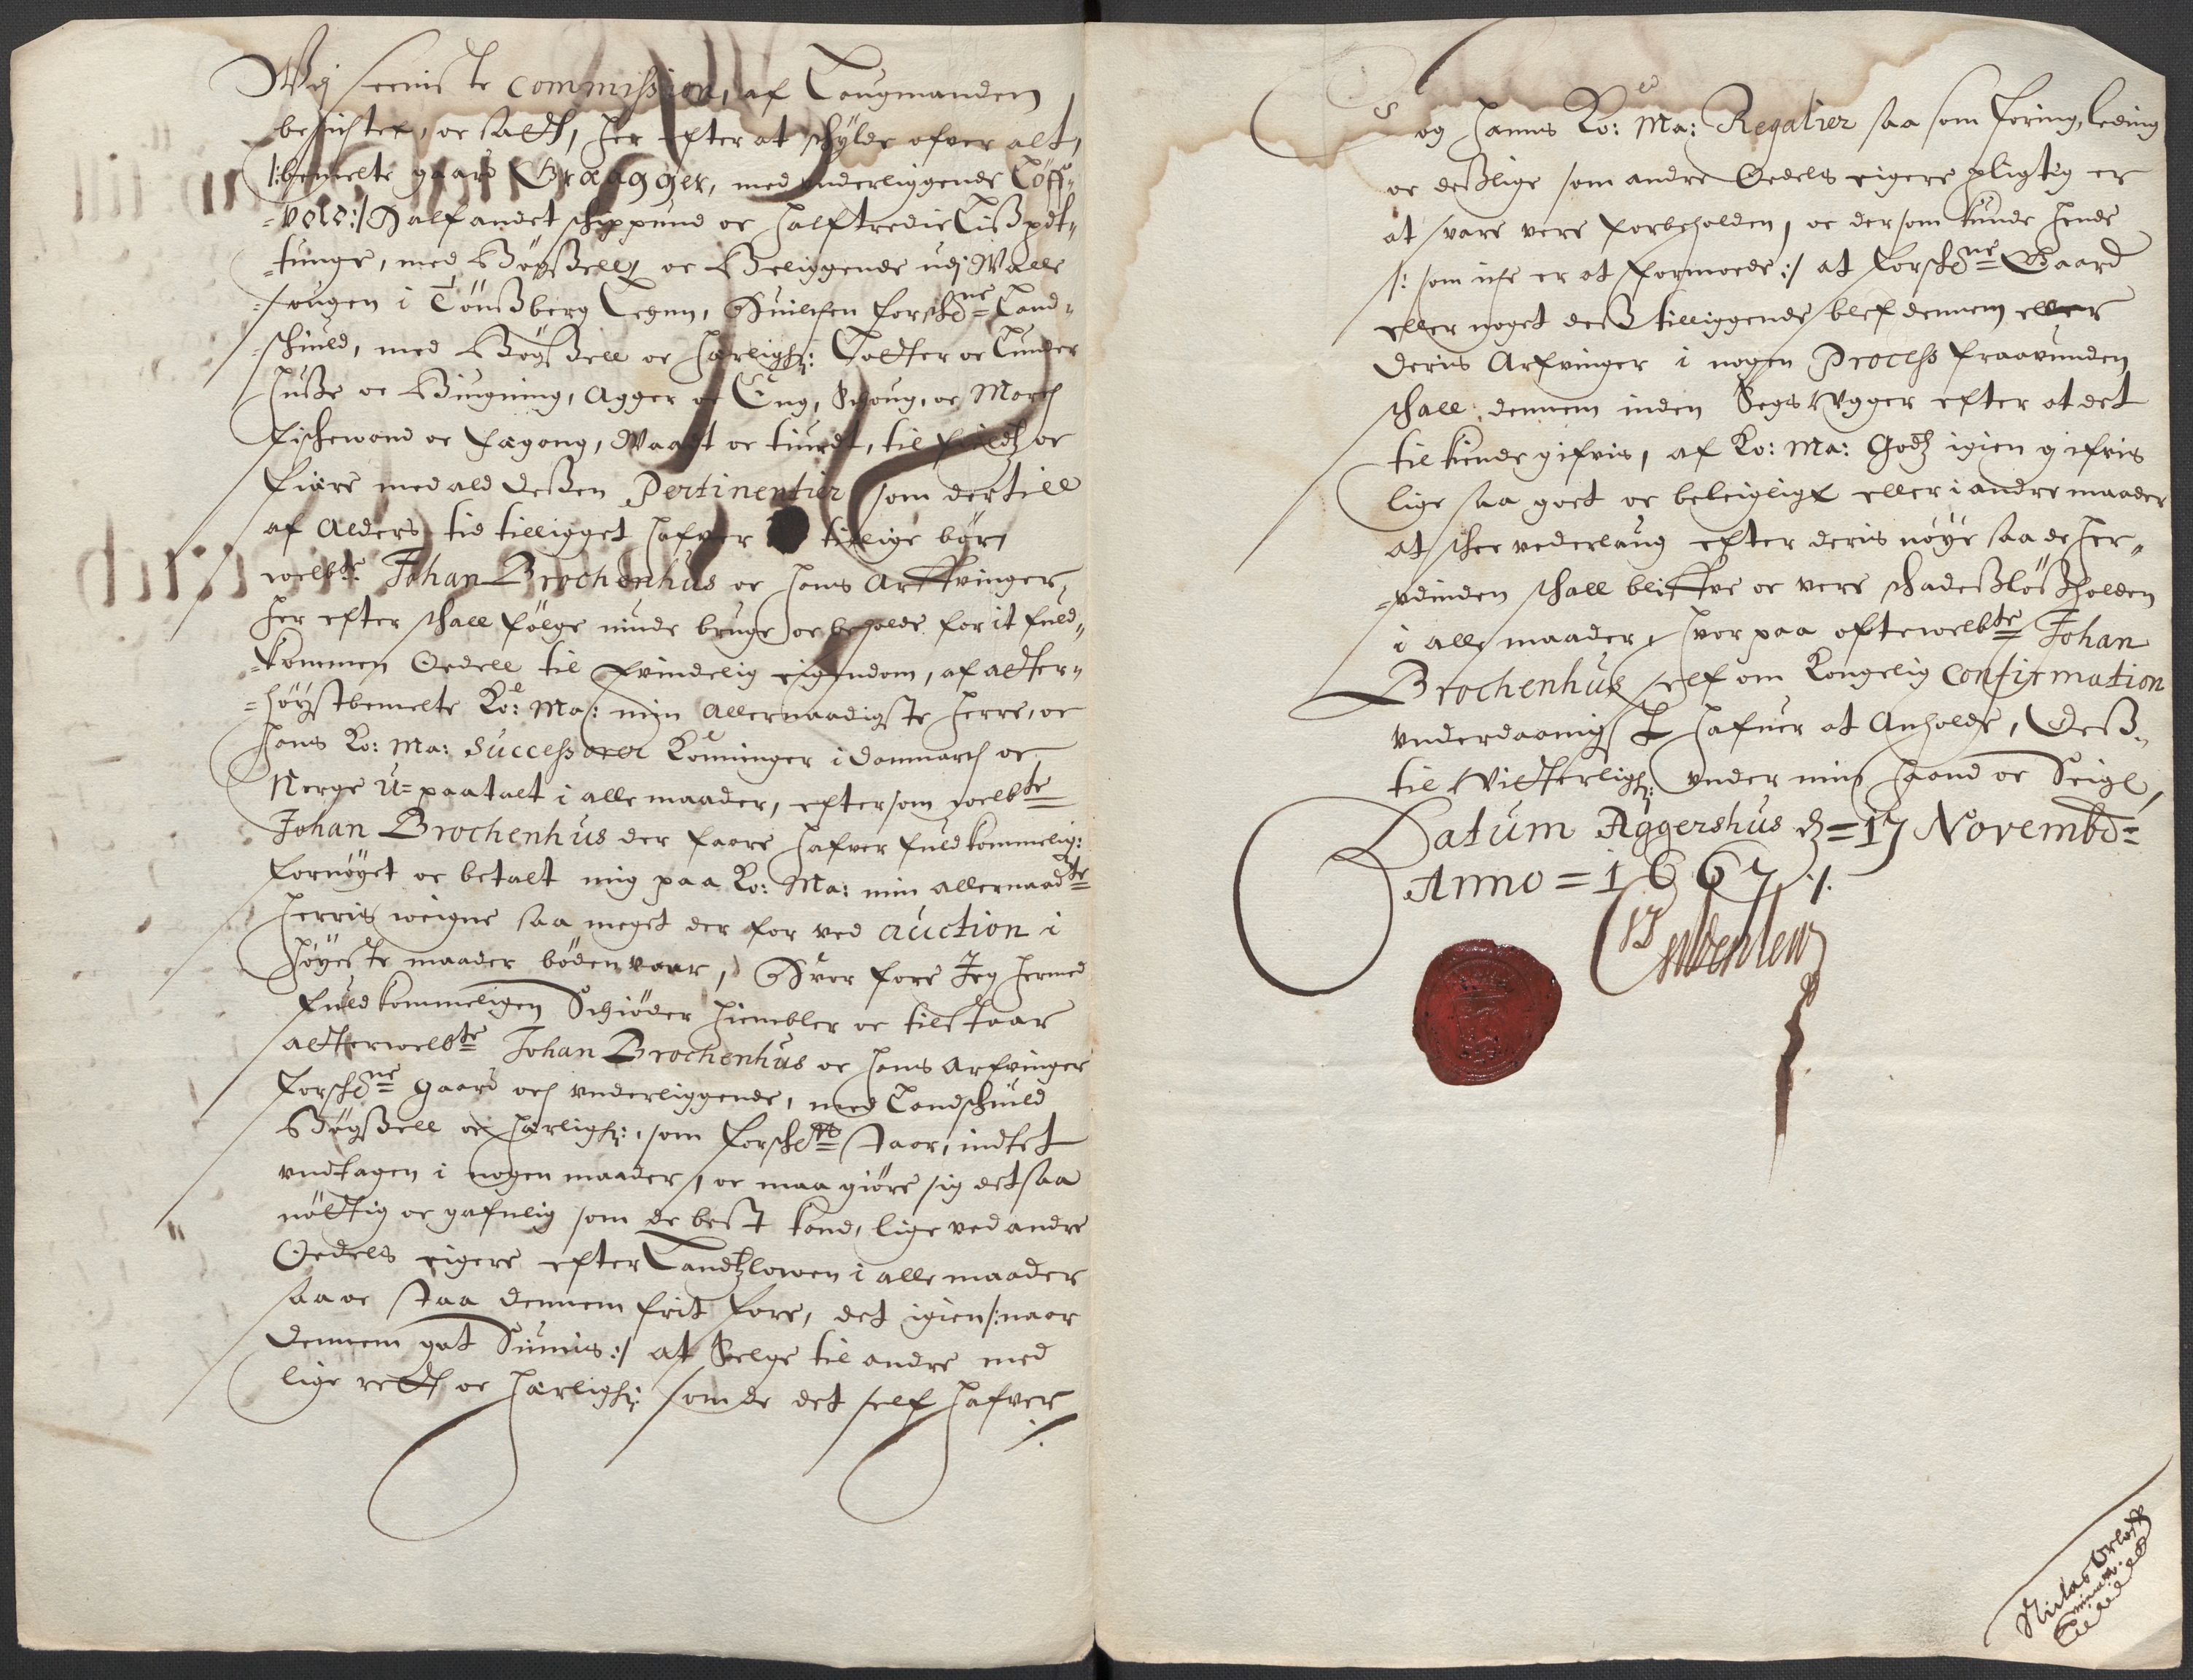 Vdj seeniste commission, af Laugmanden
besichtet, oc satt, her efter at schylde ofver alt,
/:bemelte gaard Graagger, med underliggende Löff-
=vold:/ Halfandet schippund oc halftredie Lißpdt
=tunge, med Böxßell oc Beliggende udj Walle
=sougen i Tönßberg Legnn, Huilchen forschne Land-
=schuld, med Bögßell oc herligh: Lotter oc Lunder
Huße oc Biugning, Agger oc Eng, Schoug, oc March
Fischewand oc fægang, Waadt oc tiurdt, til fieldz oc
fiære med ald deßen Pertinentier som dertill
af Alders tid tilligget hafver tillige bör
welbte Johan Brochenhus oc hans Arffvinger
her efter schall fölge niude bruge oc beholde for it fuld-
=kommen Oedell til Evindelig eigendom, af after-
=höystbemelte Ko: Ma: min Allernaadigste herre, oc
hans Ko: Ma: Successorer Konninger i Danmarch oc
Nerge u=paatalt i alle maader, eftersom welbte
Johan Brochenhus der faare hafver fuldkommelig:
fornöyet oc betalt mig paa Ko: Ma: min allernaadte
herris weigne saa meget der for ved auction i
höyeste maader böden vaar, Hvor fore Jeg hermed
fuldkommeligen Schiöder hiembler oc tilstaar
atterwelbte Johan Brochenhus oc hans Arfvinger
forschne gaard och underliggende, med Landschuld
Bögßell oc herligh:, som forschet staar, indtet
undtagen i nogen maader, oc maa giöre sig det saa
nöttig oc gafnlig som de best kand, lige ved andre
Oedels eigere efter Landtzlowen i alle maader
saa oc staa dennem frit fore, det igien /:naar
dennem got Siunis:/ at Selge til andre med
lige rett oc herligh: som de det self hafver
og hanns Ko: Ma: Regalier saa som foring, leding
oc deßlige som andre Oedels eigere pligtig er
at svare vere forbeholden, oc dersom kunde hende
/: som icke er at formoede :/ at forschne Gaard
eller noget deß tilliggende blef dennem eller
deris Arfvinger i nogen Process fraavunden
schall dennem inden Sex Ugger efter at det
til kiende gifvis, af Ko: Ma: Godtz igien gifvis
lige saa goet oc beleiligt eller i andre maader
at schee vederlaug efter deris nöye saa de her-
=udinden schall bliffve oc vere schadeßlößholden
i alle maader, hvor paa oftewelbte Johan
Brochenhus self om Kongelig Confirmation
underdaanigst hafuer at Anholde, Deß
til Vitterligh: under min Haand oc Seigl,
Datum Aggershus d=17 Novembr=
Anno=1667 ./.